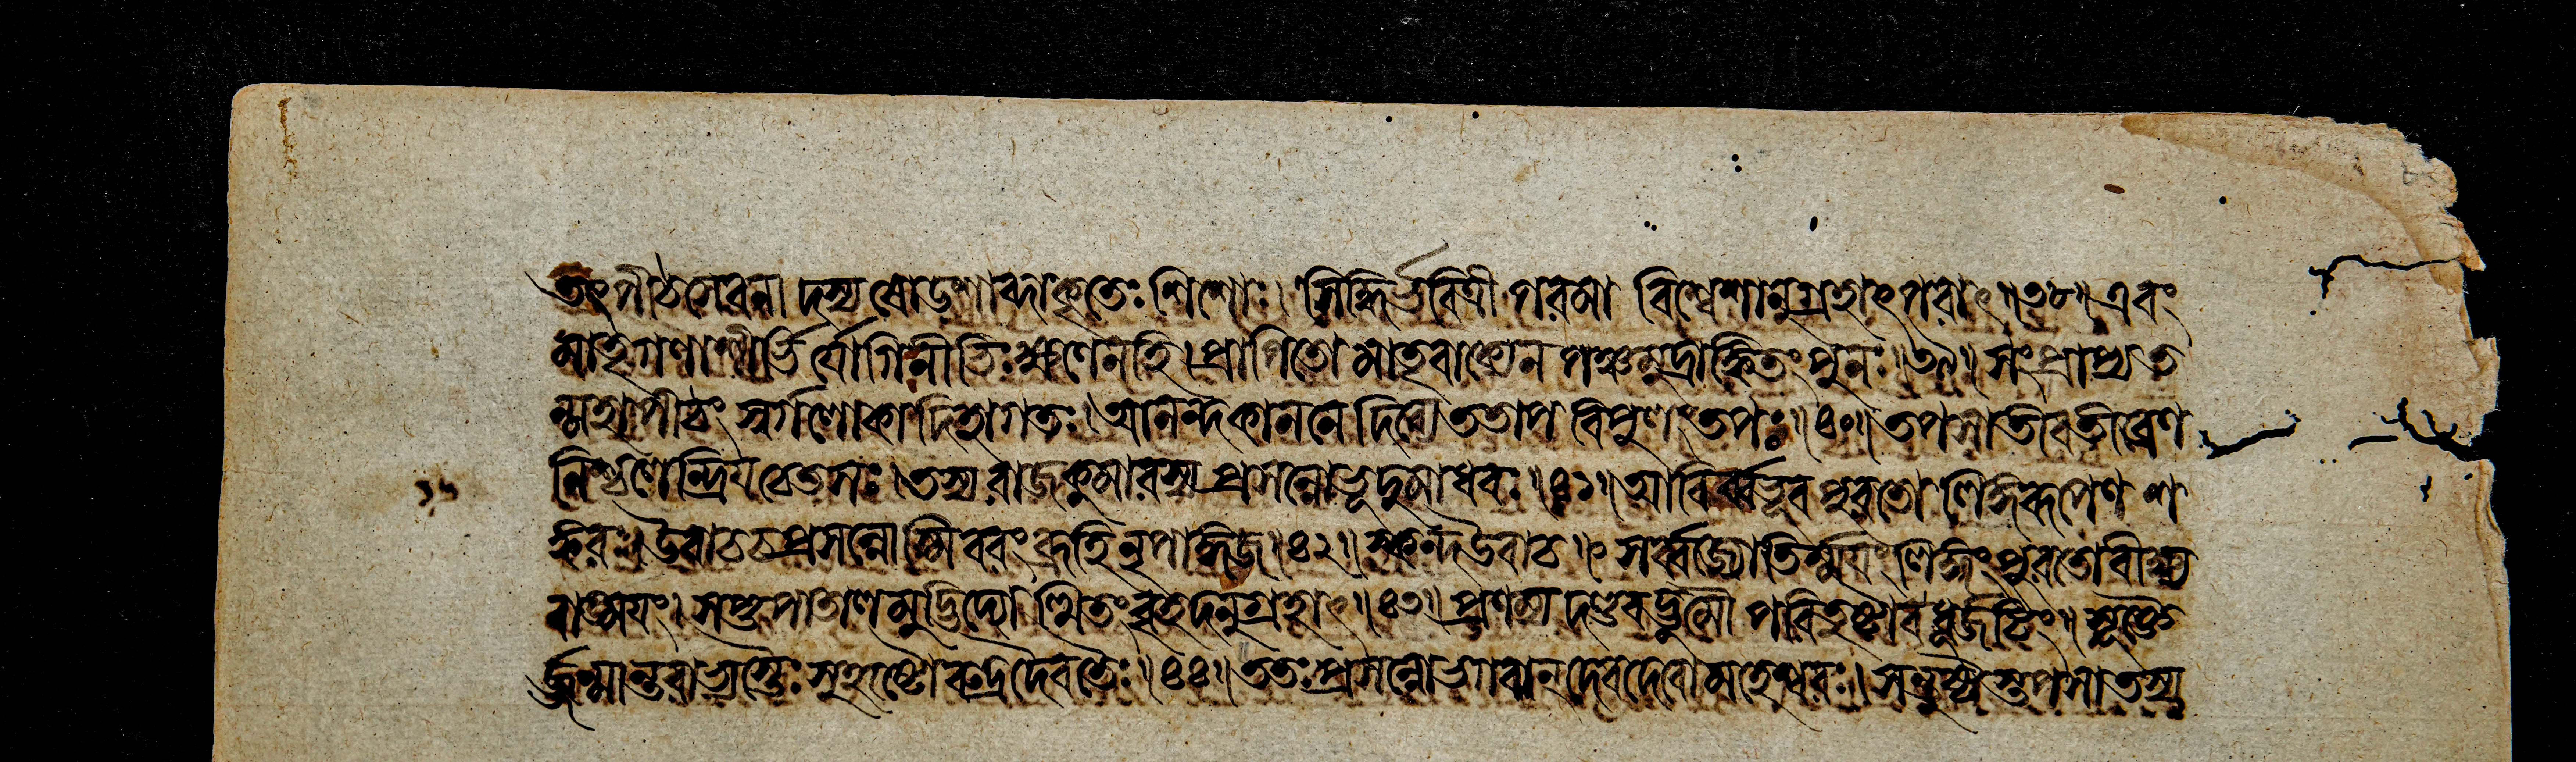 তৎপীঠসেবনাদস্য ষোডশাব্দাকৃতেঃ শিশোঃ। সিদ্ধির্ভবিত্রী পরমা বিশ্বেশানুগ্রহাৎপরাৎ॥৩৮॥ এবং
মাতৃগণাশীর্ভির্যোগিনীভিঃ ক্ষণেন হি। প্রাপিতো মাতৃবাক্যেন পঞ্চমুদ্রাঙ্কিতং পুনঃ॥৩৯॥ সংপ্রাপ্য ত
ন্মহাপীঠং স্বর্গলোকাদিহাগতঃ। আনন্দকাননে দিব্যে ততাপ বিপুলং তপঃ॥৪০॥ তপসাতীবতীব্রেণ
নিশ্চলেন্দ্রিযচেতসঃ। তস্য রাজকুমারস্য প্রসন্নোভূদুমাধবঃ॥৪১॥ আবির্ব্বভূব পুরতো লিঙ্গরূপেণ শ
ঙ্করঃ। উবাচ চ প্রসন্নোস্মি বরং ব্রূহি নৃপাঙ্গজ॥৪২॥ স্কন্দ উবাচ॥ সর্ব্বজ্যোতির্ম্ময়ং লিঙ্গং পুরতো বীক্ষ্য
বাঙ্ময়ং। সপ্তপাতালমুদ্ভিদ্য স্থিতং বৃহদনুগ্রহাৎ॥৪৩॥ প্রণম্য দণ্ডবদ্ভূমৌ পরিতুষ্টাব ধূর্জটিং। সূক্তৈ
র্জন্মান্তরাভ্যস্তৈঃ সুহৃষ্টো রুদ্রদৈবতৈঃ॥৪৪॥ ততঃ প্রসন্নো ভগবান্ দেবদেবো মহেশ্বরঃ। সন্তুষ্টস্তপসা তস্য